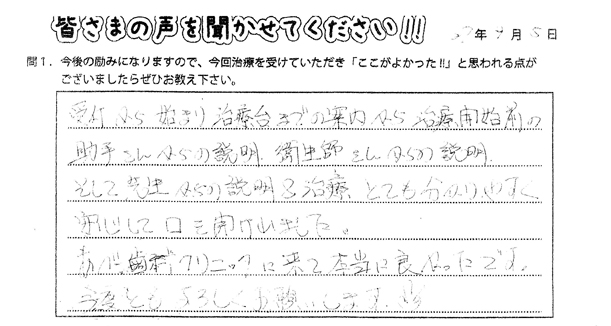 皆さまの声を聞かせてください!!!
27年9月5日
問1. 今後の励みになりますので、今回治療を受けていただき「ここがよかった!!」と思われる点が
ございましたらぜひお教え下さい。
受付から始まり治療台までの案内から治療開始前の
助手さんからの説明、衛生師さんからの説明、
そして先生からの説明&治療 とても分かりやすく
安心して口を開けれました。
歯科クリニックに来て本当に良かったです。
今後ともよろしくお願いします。